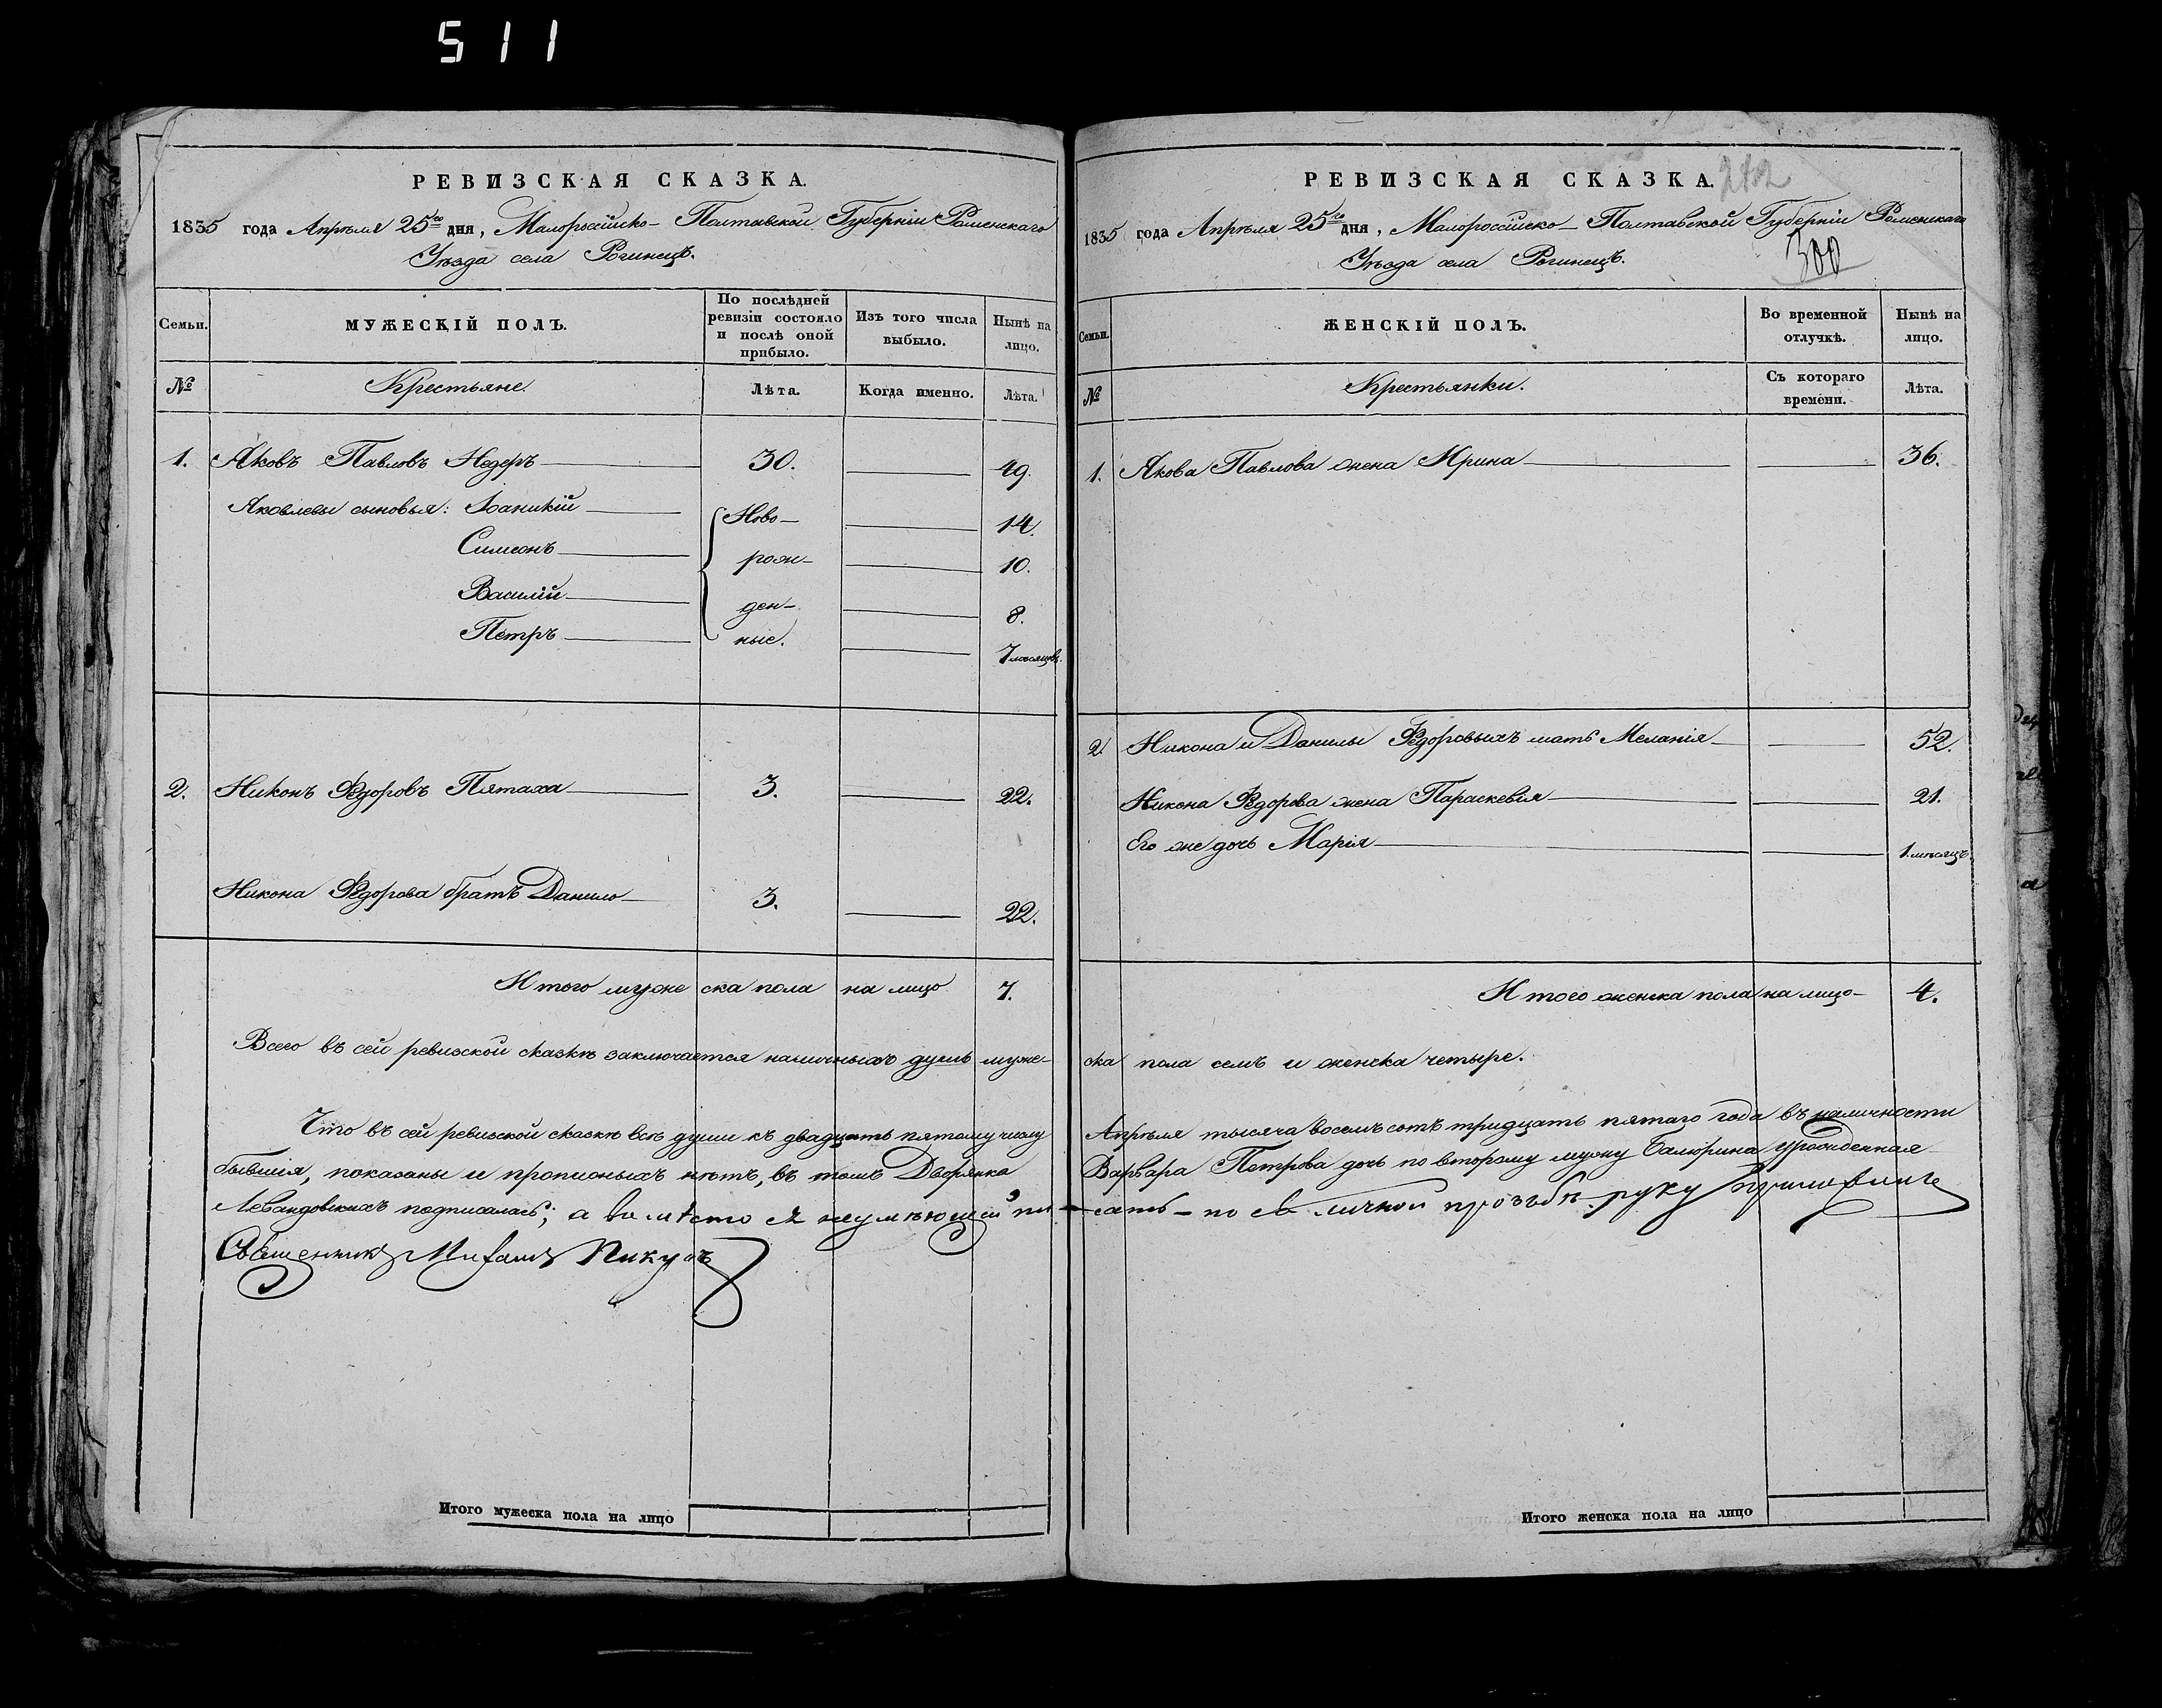 511
РЕВИЗСКАЯ СКАЗКА.
1835 года Апрѣля 25го дня, Малороссійско-Полтавской Губерніи Роменскаго
Уѣзда села Рогинецъ.
Семьи.
МУЖЕСКІЙ ПОЛЪ.
По послѣдней ревизіи состояло и послѣ оной прибыло.
Изъ того числа выбыло.
Нынѣ на лицо.
№
Крестьяне.
Лѣта.
Когда именно.
Лѣта.
1. Яковъ Павловъ Недеръ 30. 49.
Яковлевы сыновья: Іоаникій Ново- 14.
Симеонъ рож- 10.
Василій ден- 8.
Петръ ные. 7 месяцовъ.
2. Никонъ Федоровъ Пятаха 3. 22.
Никона Федорова братъ Данило 3. 22.
Итого мужеска пола на лицо 7.
Всего въ сей ревизской сказкѣ заключается наличныхъ душъ муже-
Что въ сей ревизской сказкѣ всѣ души къ двадцать пятому числу
бывшія, показаны и прописныхъ нѣтъ, въ томъ Дворянка
Левандовскихъ подписалась; а вместо ея неумѣющей пи-
Священникъ Михаилъ Пикусъ
Итого мужеска пола на лицо
РЕВИЗСКАЯ СКАЗКА.
300
1835 года Апрѣля 25го дня, Малороссійско-Полтавской Губерніи Роменскаго
Уѣзда села Рогинецъ.
Семьи.
ЖЕНСКІЙ ПОЛЪ.
Во временной отлучкѣ.
Нынѣ на лицо.
№
Крестьянки.
Съ котораго времени.
Лѣта.
1. Якова Павлова жена Ирина 36.
2. Никона и Данилы Федоровыхъ мать Меланія 52.
Никона Федорова жена Параскевія 21.
Его же дочь Марія 1 месяцъ.
Итого женска пола на лицо 4.
ска пола семъ и женска четыре.
Апрѣля тысяча восемъ сотъ тридцать пятаго года въ наличности
Варвара Петрова дочь по второму мужу урожденная
сать по ея личной прозьбѣ руку приложилъ
Итого женска пола на лицо